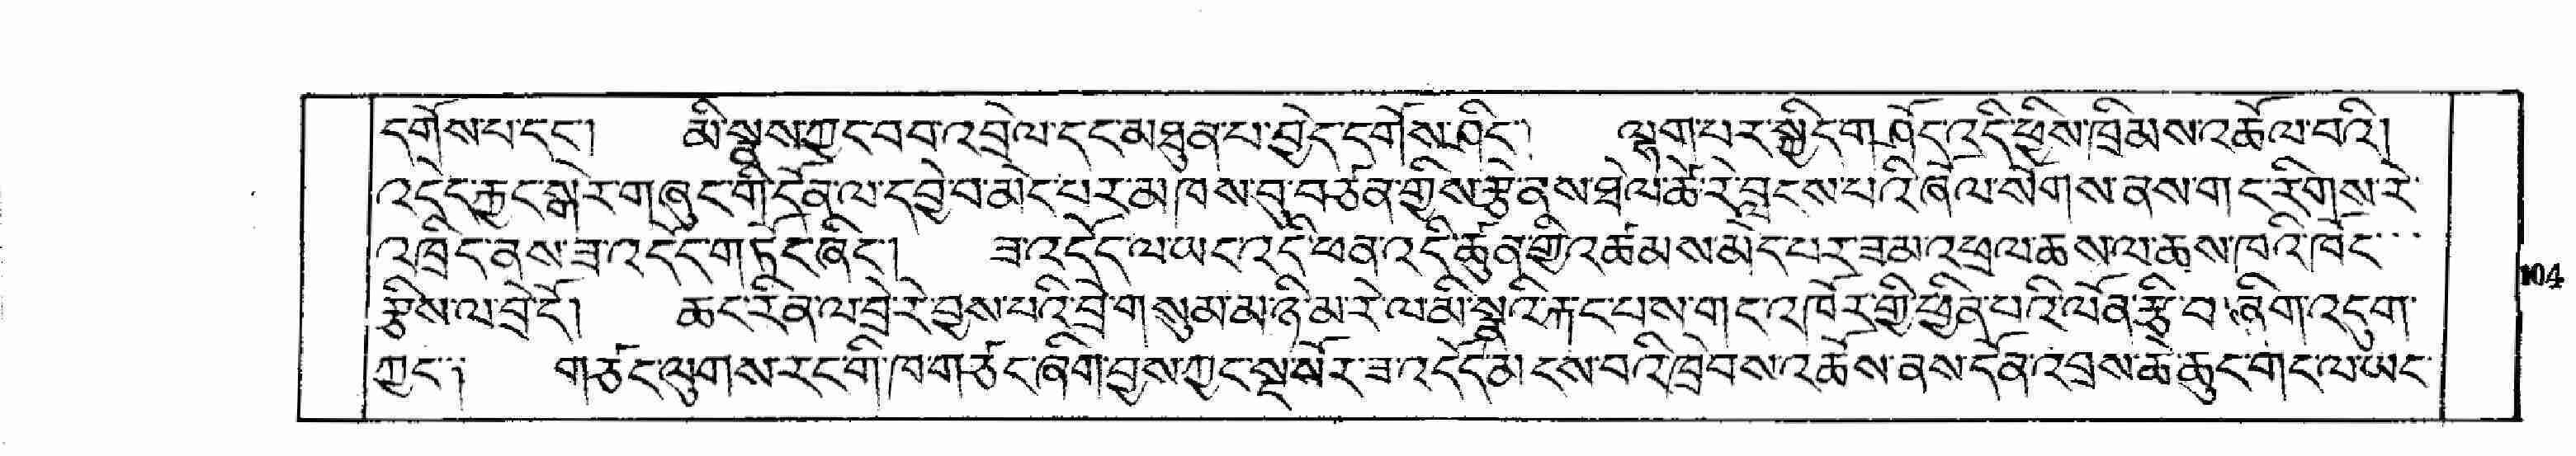 དགོས་པ་དང་། མི་སྣས་ཀྱང་བབ་འབྲེལ་དང་མཐུན་པ་བྱེད་དགོས་ཤིང་། ལྷག་པར་སྐྱིད་གཤོད་འདི་ཕྱིས་ཁྲིམས་འཆོལ་བའི།
འདེད་རྐྱང་སྒེར་གཞུང་གི་དོན་ལ་དབྱེབ་མེད་པར་མཁས་བུ་བཙན་གྱིས་རྩེ་ནས་ཐེལ་ཚེ་རེ་བླངས་པའི་ཞལ་སོགས་ནས་གང་རིགས་རེ་
འཁྲིད་ནས་ཟ་འདོད་གཏོང་ཞིང་། ཟ་འདོད་ལ་ཡང་འདི་ཕན་འདི་ཚུན་གྱི་འཚམས་མེད་པར་ཟམ་འཕྲལ་ཆས་ལ་ཆས་ཁའི་ཁོང་
རྩིས་ལ་བྲེ་དོ། ཆང་རིན་ལ་བྲེ་རེ་བྱས་པའི་བྲེ་གསུམ་མ་ཉི་མ་རེ་ལ་མི་སྣའི་རྐང་པས་གང་འཁོར་གྱི་ཕྱིན་པའི་ལོན་རྩི་བ་ཞིག་འདུག་
ཀྱང་། གཙང་ལུགས་རང་གི་ཁ་གཙང་ཞིག་བྱས་ཀྱང་སྔ་སོར་ཟ་འདོད་མངས་བའི་ཁྲེབས་འཆོས་ནས་དོན་འབྲས་ཆེ་ཆུང་གང་ལ་ཡང་
104